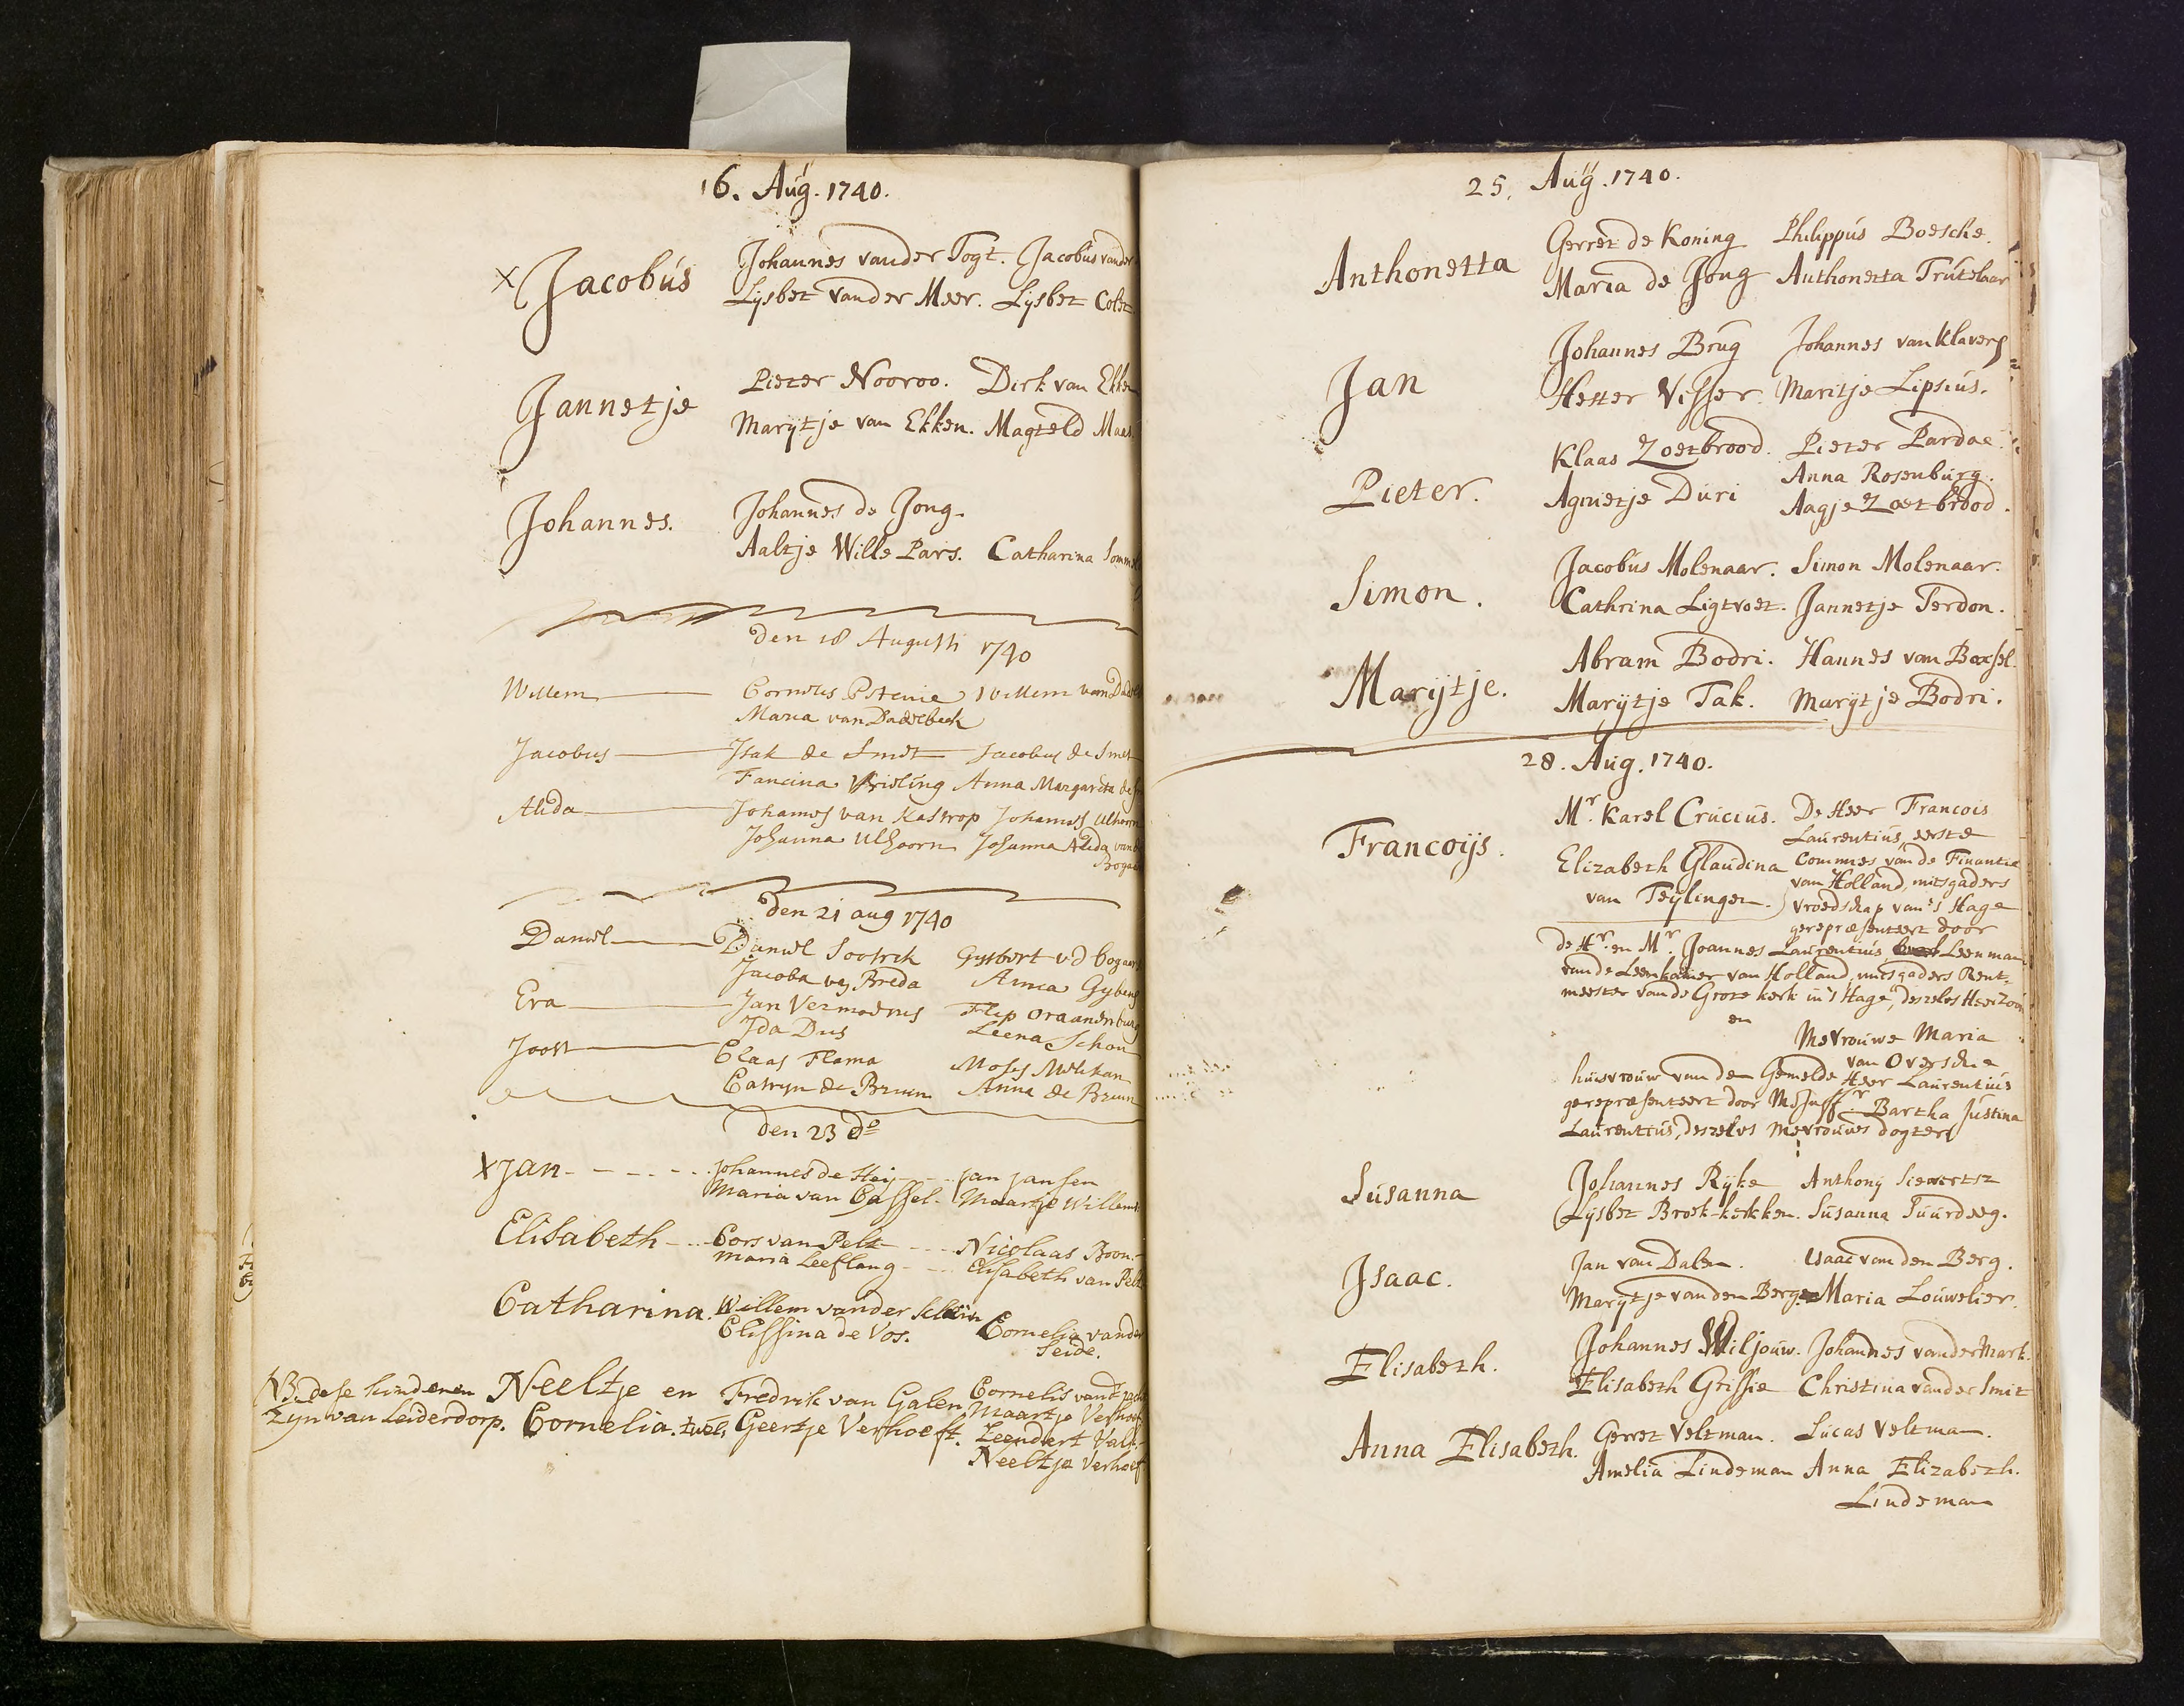 16. Aug. 1740.
x Jacobus Johannes vander Togt. Jacobus vander
Lijsbet vander Meer. Lijsbet Colet
Jannetje Pieter Nooroo. Dirk van Ekken
Marijtje van Ekken. Magteld Maas.
Johannes. Johannes de Jong.
Aaltje Wille Pars. Catharina
den 18 Augusti 1740
Willem Cornelis Willem van
Maria van Dadelbeek
Jacobus Isak de Smet Jacobus de Smet
Fancina Vrisling Anna Margarita de
Alida Johannes van Kastrop Johannes Ulhoorn
Johanna Ulhoorn Johanna Alida vande
Bogaa
den 21 aug 1740
Daniel Daniel Gysbert v d bogaar
Jacoba vy Breda Anna Gybens
Eva Jan Vermoenus Flip oraanenburg
Ida Dus Leena Schon
Joost Claas Flama Moses
Catryn de Bruin Anna de Bruin
den 23 do
x Jan Johannes de Heij Jan Jansen
Maria van Cassel. Maartje Willems
Elisabeth Cors van Pelt Nicolaas Boon
Maria Leeflang Elisabeth van Pelt
Catharina. Willem vander
Elissina de Vos. Cornelia vander
Seide.
NB. dese kinderen Neeltje en Fredrik van Galen Cornelis
Zijn van Leiderdorp. Cornelia. twel. Geertje Verhoeft. Maartje Verhoef
Leendert
Neeltje Verhoef
25. Aug. 1740.
Anthonetta Gerret de Koning Philippus Boesche.
Maria de Jong Anthonetta Trutelaar
Jan Johannes Brug Johannes van Klavers
Hester Visser. Maritje Lipsius.
Pieter. Klaas Zoetbrood. Pieter Pardae.
Anna Rosenburg.
Agnietje Duri Aagje Zoetbrood.
Simon. Jacobus Molenaar. Simon Molenaar.
Cathrina Ligtvoet. Jannetje Terdon.
Marijtje. Abram Bodri. Hannes van Boxsel.
Marijtje Tak. Marijtje Bodri.
28. Aug. 1740.
Francoijs. Mr. Karel Crucius. De Heer Francois
Laurentius, eerste
Elizabeth Glaudina Commies van de Finantie
van Holland, mitsgaders
van Teijlingen. Vroedschap van 's Hage
gerepræsenteert door
de Hr. en Mr. Joannes Laurentius, Leenman
van de Leenkamer van Holland, mitsgaders Rent-
meester van de Grote kerk in 's Hage, deszelvs Heer Zoon
en
Mevrouwe Maria
van Overschie
huisvrouw van den Gemelde Heer Laurentius
gerepræsenteert door Mejuffr. Bartha Justina
Laurentius, deszelvs Mevrouwes dogter
Susanna Johannes Rijke Anthony Siewertsz
Lijsbet Broek-kerkken. Susanna Tuurdeeg.
Isaac. Jan van Dalen. Isaac van den Berg.
Marijtje van den Berg. Maria Louwelier.
Elisabeth. Johannes Miljouw. Johannes vander Mark.
Elisabeth Grissie Christina vander Smit
Anna Elisabeth. Gerret Veltman. Lucas Veltman.
Amelia Lindeman Anna Elizabeth.
Lindeman